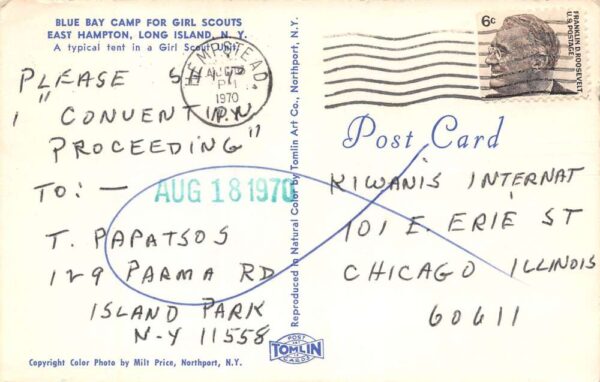 BLUE BAY CAMP FOR GIRL SCOUTS
EAST HAMPTON, LONG ISLAND, N. Y.
A typical tent in a Girl Scout Unit
PLEASE SH
1 "CONVENTION
PROCEEDING"
TO: —
AUG 18 1970
T. PAPATSOS
129 PARMA RD
ISLAND PARK
N-Y 11558
Copyright Color Photo by Milt Price, Northport, N.Y.
HEMPSTEAD,
AUG
PM
1970
N.Y.
Reproduced in Natural Color by Tomlin Art Co., Northport, N.Y.
POST
TOMLIN
CARDS
6c
FRANKLIN D. ROOSEVELT
U.S. POSTAGE
Post Card
KIWANIS INTERNAT
101 E. ERIE ST
CHICAGO ILLINOIS
60611